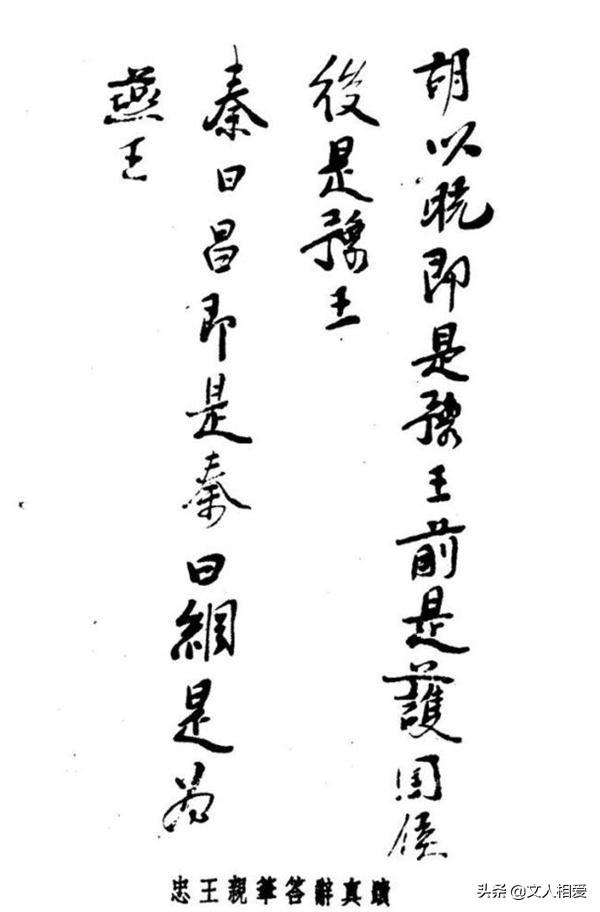 胡以晄即是豫王前是護囯侯
後是豫王
秦日昌即是秦日綱是為
燕王
忠王親筆答辭真蹟
头条 @文人相爱